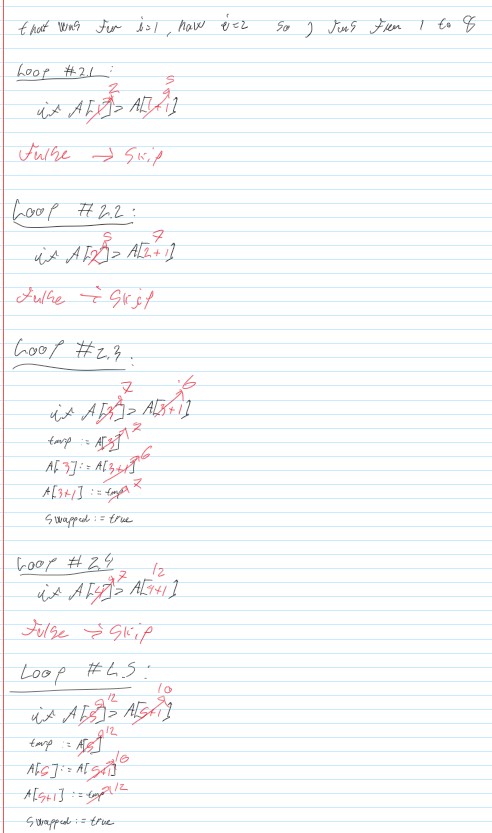 that was for i=1, now i=2 so j runs from 1 to 8
Loop #2.1:
2 5
if A[1] > A[1+1]
False → Skip
Loop #2.2:
5 7
if A[2] > A[2+1]
False → Skip
Loop #2.3:
7 6
if A[3] > A[3+1]
tmp := A[3] 7
A[3] := A[3+1] 6
A[3+1] := tmp 7
swapped := true
Loop #2.4
7 12
if A[4] > A[4+1]
False → Skip
Loop #2.5:
12 10
if A[5] > A[5+1]
tmp := A[5] 12
A[5] := A[5+1] 10
A[5+1] := tmp 12
swapped := true